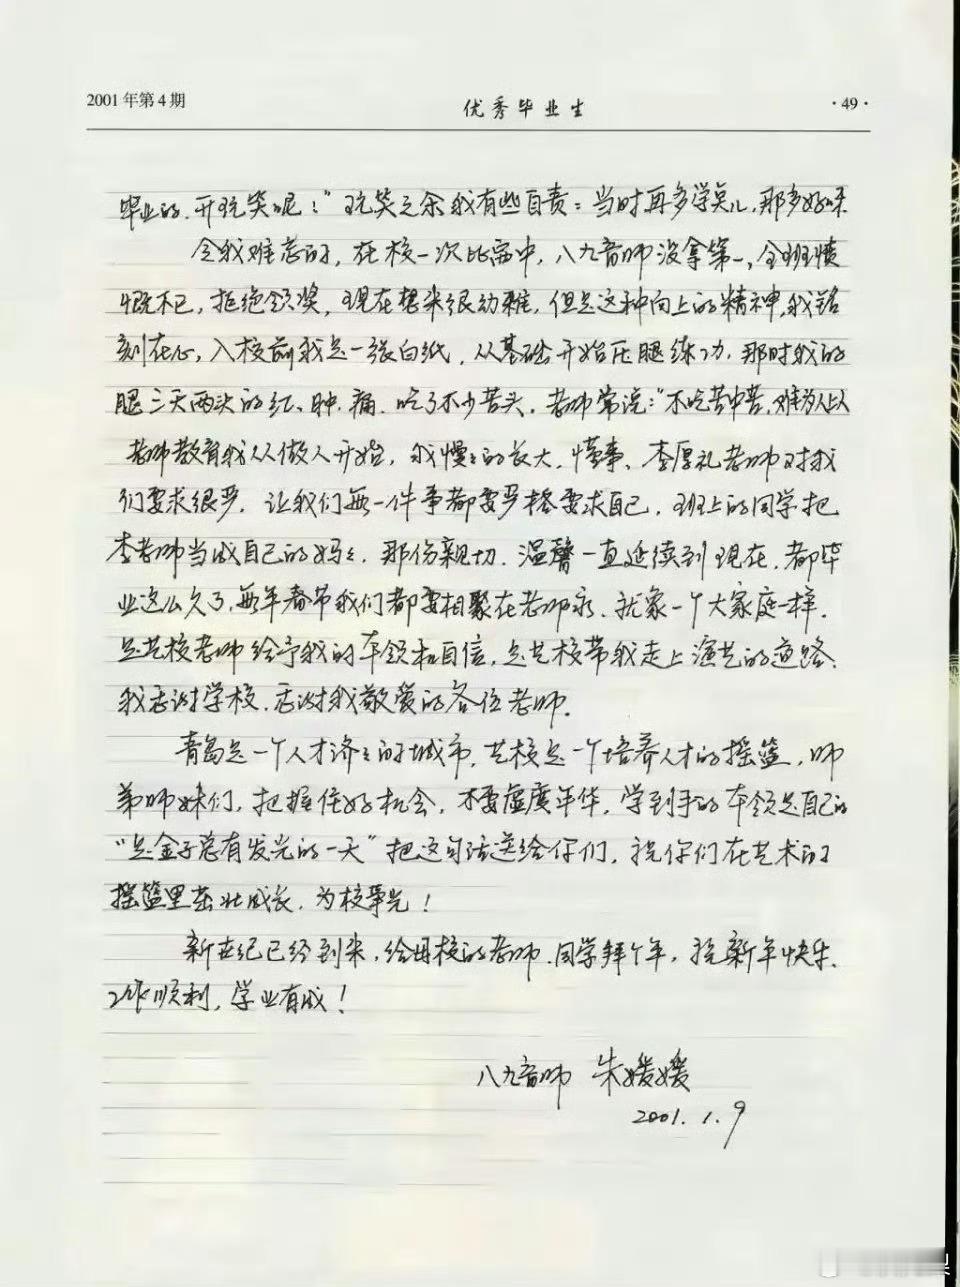 2001年第4期 优秀毕业生 ·49·
毕业的.开玩笑呢!"玩笑之余我有些自责:当时再多学点儿,那多好呀
令我难忘的,在校一次比赛中,八九音师没拿第一,全班愤
慨不已,拒绝领奖,现在想来很幼稚,但是这种向上的精神,我铭
刻在心,入校前我是一张白纸.从基础开始压腿练功.那时我的
腿三天两头的红、肿.痛.吃了不少苦头.老师常说:"不吃苦中苦,难为人上人
老师教育我从做人开始,我慢慢的长大.懂事、李厚礼老师对我
们要求很严.让我们每一件事都要严格要求自己.班上的同学把
李老师当成自己的妈妈.那份亲切.温馨一直延续到现在.都毕
业这么久了,每年春节我们都要相聚在老师家.就象一个大家庭一样.
是艺校老师给予我的本领和自信,是艺校带我走上演艺的道路.
我感谢学校.感谢我敬爱的各位老师.
青岛是一个人才济济的城市,艺校是一个培养人才的摇篮,师
弟师妹们,把握住好机会,不要虚度年华,学到手的本领是自己的
"是金子总有发光的一天"把这句话送给你们,祝你们在艺术的
摇篮里茁壮成长.为校争光!
新世纪已经到来,给母校的老师.同学拜个年,祝新年快乐.
工作顺利,学业有成!
八九音师 朱媛媛
2001.1.9